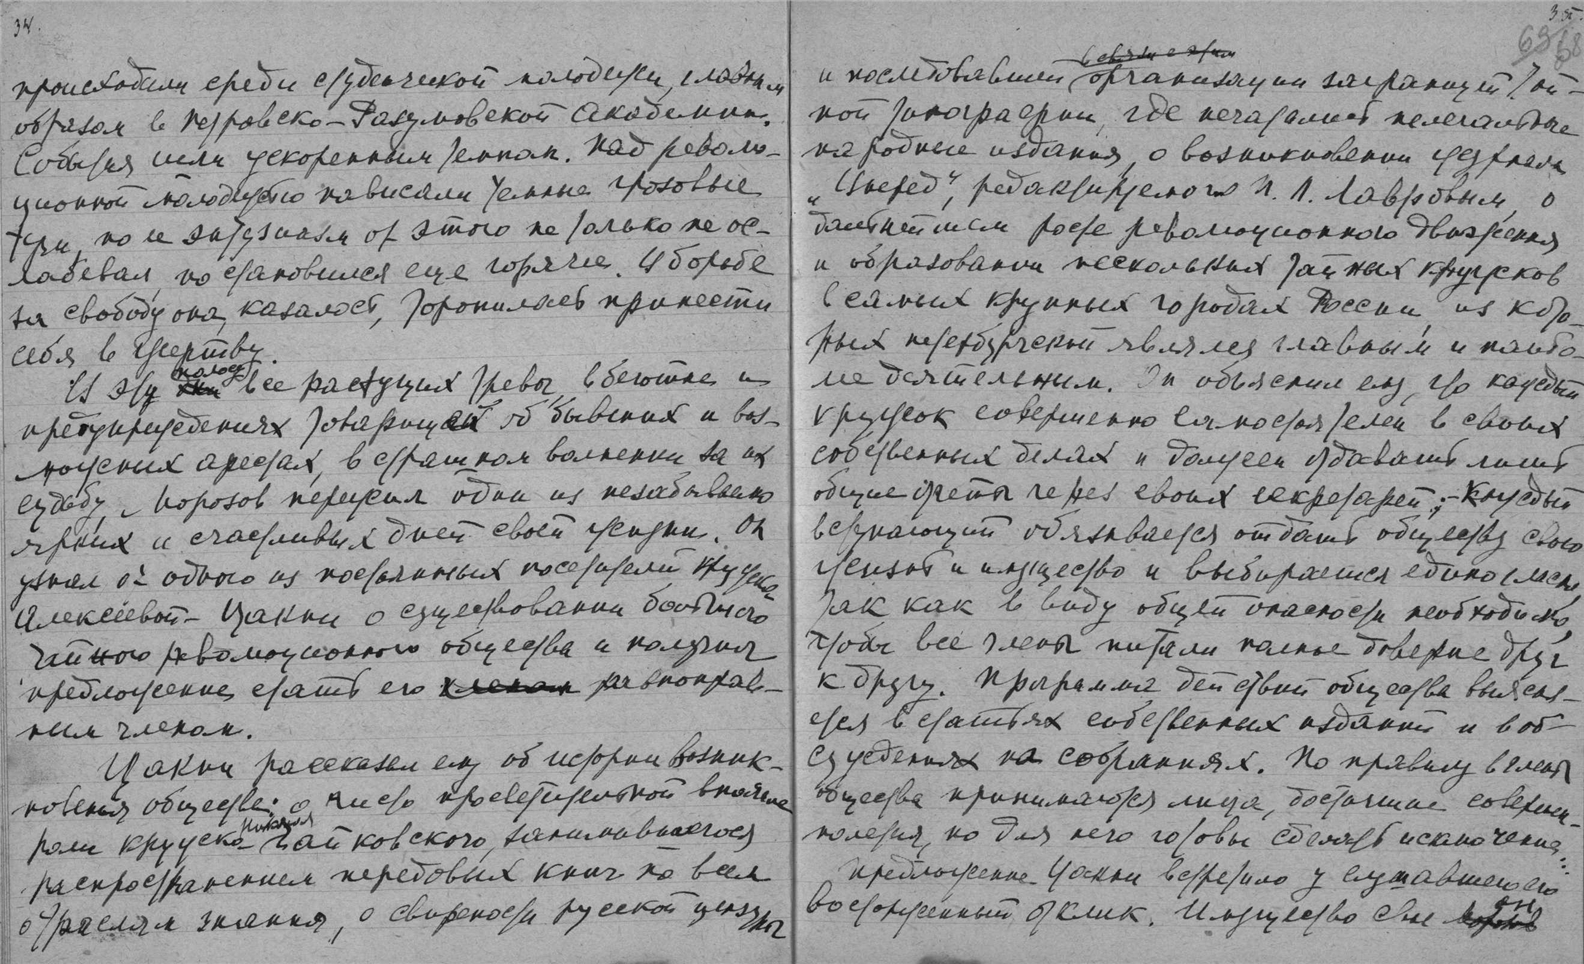 34.
происходили среди студенческой молодежи, главным
образом в Петровско-Разумовской Академии.
События шли ускоренным темпом. Над револю-
ционной молодежью нависали темные грозовые
тучи, но ее энтузиазм от этого не только не ос-
лабевал, но становился еще горячее. И борьбе
за свободу она, казалось, торопилась принести
себя в жертву.
В эту полосу все растущих тревог, в беготне и
предупреждениях товарищей об бывших и воз-
можных арестах, в страшном волнении за их
судьбу, Морозов пережил один из незабываемо
ярких и счастливых дней своей жизни. Он
узнал от одного из постоянных посетителей кружка
Алексеевой - Цакни о существовании большого
тайного революционного общества и получил
предложение стать его членом равноправ-
ным членом.
Цакни рассказал ему об истории возник-
новения общества: о чисто просветительной вначале
роли кружка Николая Чайковского, занимавшегося
распространением передовых книг по всем
отраслям знания, о свирепости русской цензуры
35.
68
в связи с этим
и последовавшей организации заграницей тай-
ной типографии, где печатались нелегальные
народные издания, о возникновении журнала
„Вперед", редактируемого П. Л. Лавровым, о
дальнейшем росте революционного движения
и образовании нескольких тайных кружков
в самых крупных городах России, из кото-
рых петербургский являлся главным и наибо-
лее деятельным. Он объяснил ему, что каждый
кружок совершенно самостоятелен в своих
собственных делах и должен отдавать лишь
общие отчеты через своих секретарей; - Каждый
вступающий обязывается отдать обществу свою
жизнь и имущество и выбирается единогласно,
так как в виду общей опасности необходимо,
чтобы все члены питали полное доверие друг
к другу. Программа действий общества выясня-
ется в статьях собственных изданий и в об-
суждениях на собраниях. По правилу в члены
общества принимаются лица, достигшие совершен-
нолетия, но для него готовы сделать исключение...
Предложение Цакни встретило у слушавшего его
восторженный отклик. Имущество свое он